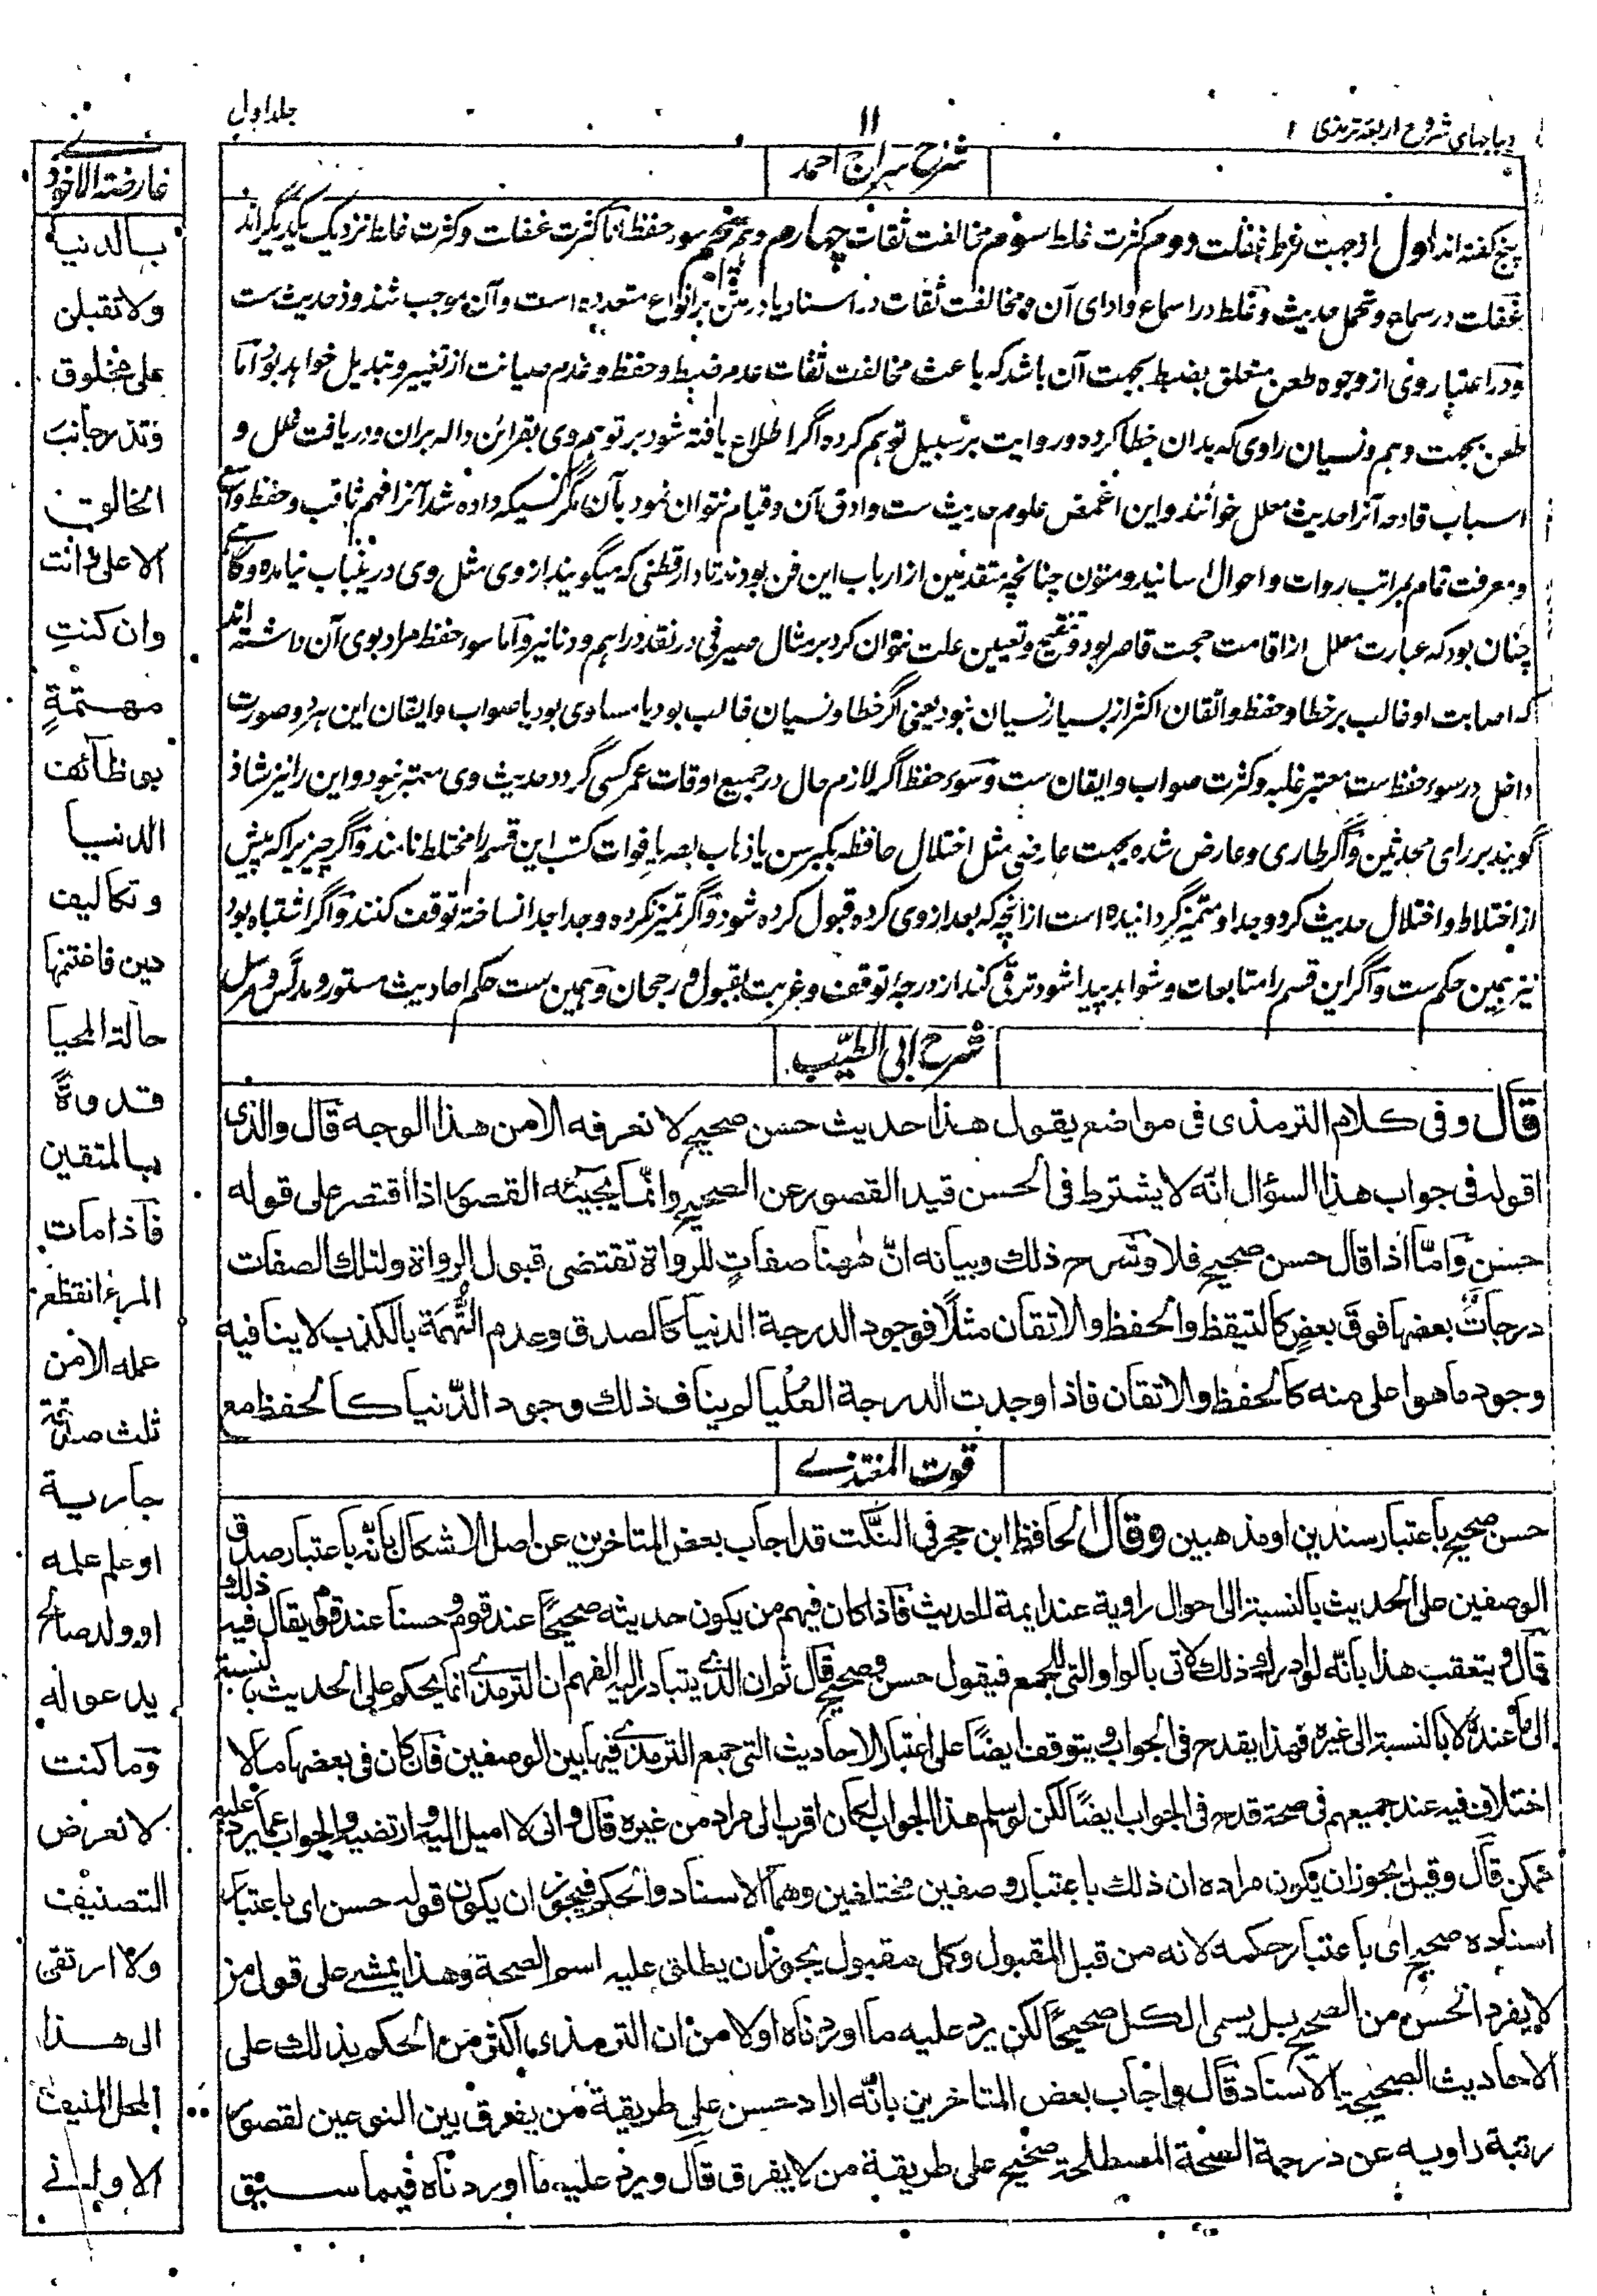 دیباچهای شروح اربعه ترمذی
۱۱
جلد اول
شرح سراج احمد
پنج گفته اند اول از جهت فرط غفلت دوم کثرت غلط سوم مخالفت ثقات چهارم وهم پنجم سوء حفظ اما کثرت غفلت و کثرت غلط نزدیک یکدیگر اند
غفلت در سماع و تحمل حدیث و غلط در اسماع و ادای آن و مخالفت ثقات در اسناد یا در متن بر انواع متعدده است و آن موجب شذوذ حدیث ست
و در اعتبار وی از وجوه طعن متعلق بضبط بجهت آن باشد که باعث مخالفت ثقات عدم ضبط و حفظ و عدم صیانت از تغییر و تبدیل خواهد بود اما
طعن بجهت وهم و نسیان راوی که بدان خطا کرده و روایت بر سبیل توهم کرده اگر اطلاع یافته شود بر توهم وی بقرائن داله بران و دریافت علل و
اسباب قادحه آنرا حدیث معلل خوانند و این اغمض علوم حدیث ست و ادق آن و قیام نتوان نمود بآن مگر کسیکه داده شد آنرا فهم ثاقب و حفظ واسع
و معرفت تمام بمراتب روات و احوال اسانید و متون چنانچه متقدمین از ارباب این فن بودند تا دارقطنی که میگویند از وی مثل وی درین باب نیامده و گاهی
چنان بود که عبارت معلل از اقامت حجت قاصر بود و تنقیح و تعیین علت نتوان کرد بر مثال صیرفی در نقد دراهم و دنانیر و اما سوء حفظ مراد بوی آن داشته اند
که اصابت او غالب بر خطا و حفظ و اتقان اکثر از بسیار نسیان نبود یعنی اگر خطا و نسیان غالب بود یا مساوی بود با صواب و ایقان این هر دو صورت
داخل در سوء حفظ ست معتبر غلبه و کثرت صواب و ایقان ست و سوء حفظ اگر لازم حال در جمیع اوقات عمر کسی گردد حدیث وی معتبر نبود و این را نیز شاذ
گویند بر رای محدثین و اگر طاری و عارض شده بجهت عارضی مثل اختلال حافظه بکبر سن یا ذهاب بصر یا فوات کتب این قسم را مختلط نامند و اگر چیزیرا که پیش
از اختلاط و اختلال حدیث کرد و جدا و متمیز گردانیده است از آنچه که بعد از وی کرده قبول کرده شود و اگر تمیز نکرده و جدا جدا نساخته توقف کنند و اگر اشتباه بود
نیز همین حکم ست و اگر این قسم را متابعات و شواهد پیدا شود ترقی کند از درجۀ توقف و غربت بقبول و رجحان و همین ست حکم احادیث مستور و مدلس و مرسل
شرح ابی الطیّب
قال و فی کلام الترمذی فی مواضع یقول هذا حدیث حسن صحیح لا نعرفه الا من هذا الوجه قال والذی
اقوله فی جواب هذا السؤال انّه لا یشترط فی الحسن قید القصور عن الصحیح وانّما یجیئه القصور اذا اقتصر علی قوله
حسن وامّا اذا قال حسن صحیح فلا وشرح ذلك وبیانه انّ ههنا صفاتٍ للرواة تقتضی قبول الرواة ولتلك الصفات
درجاتٌ بعضها فوق بعضٍ کالتیقظ والحفظ والاتقان مثلًا فوجود الدرجة الدنیا کالصدق وعدم التُّهَمَة بالکذب لا ینافیه
وجود ما هو اعلی منه کالحفظ والاتقان فاذا وجدت الدرجة العُلْیا لم یناف ذلك وجود الدّنیا کالحفظ مع
قوت المغتذی
حسن صحیح باعتبار سندین او مذهبین وقال الحافظ ابن حجر فی النّکت قد اجاب بعض المتاخرین عن اصل الاشکال بانّه باعتبار صدق
الوصفین علی الحدیث بالنسبة الی احوال راویة عند ایمة الحدیث فاذا کان فیهم من یکون حدیثه صحیحًا عند قوم وحسنا عند قوم یقال فیه ذلك
قال و یتعقب هذا بانّه لو اراد ذلك لاتی بالواو التی للجمع فیقول حسن وصحیح قال ثم ان الذی یتبادر الیه الفهم ان الترمذی انما یحکم علی الحدیث بالنسبة
الی ما عنده لا بالنسبة الی غیره فهذا یقدح فی الجواب ویتوقف ایضًا علی اعتبار الاحادیث التی جمع الترمذی فیها بین الوصفین فان کان فی بعضها ما لا
اختلاف فیه عند جمیعهم فی صحته قدح فی الجواب ایضًا لکن لو سلم هذا الجواب لکان اقرب الی مراد من غیره قال وانی لا امیل الیه وارتضیه والجواب عما یرد علیه
ممکن قال وقیل یجوز ان یکون مراده ان ذلك باعتبار وصفین مختلفین وهما الاسناد والحکم فیجوز ان یکون قوله حسن ای باعتبار
اسناده صحیح ای باعتبار حکمه لانه من قبل المقبول وکل مقبول یجوز ان یطلق علیه اسم الصحة وهذا یمشی علی قول من
لا یفرد الحسن من الصحیح بل یسمی الکل صحیحًا لکن یرد علیه ما اوردناه اولا من ان الترمذی اکثر من الحکم بذلك علی
الاحادیث الصحیحة الاسناد قال واجاب بعض المتاخرین بانّه اراد حسن علی طریقة من یفرق بین النوعین لقصور
رتبة راویه عن درجة الصحة المصطلحة صحیح علی طریقة من لا یفرق قال ویرد علیه ما اوردناه فیما سبق
عارضة الاحوذی
بالدنیا
ولا تقبلن
علی مخلوق
فتذر جانب
الخالق
الاعلی وانت
وان کنتِ
مهتمّةٍ
بوظائف
الدنیا
وتکالیف
دین فاغتنمها
حالة المحیا
قدوةً
بالمتقین
فاذا مات
المرء انقطع
عمله الا من
ثلث صدقة
جاریة
او علم علمه
او ولد صالح
یدعو له
وما کنت
لا تعرض
التصنیف
ولا ارتقی
الی هذا
المحل المنیف
الاولی